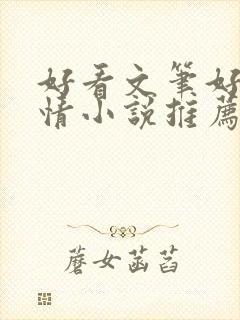 好看文筆好
情小說推薦
蘑女菡萏